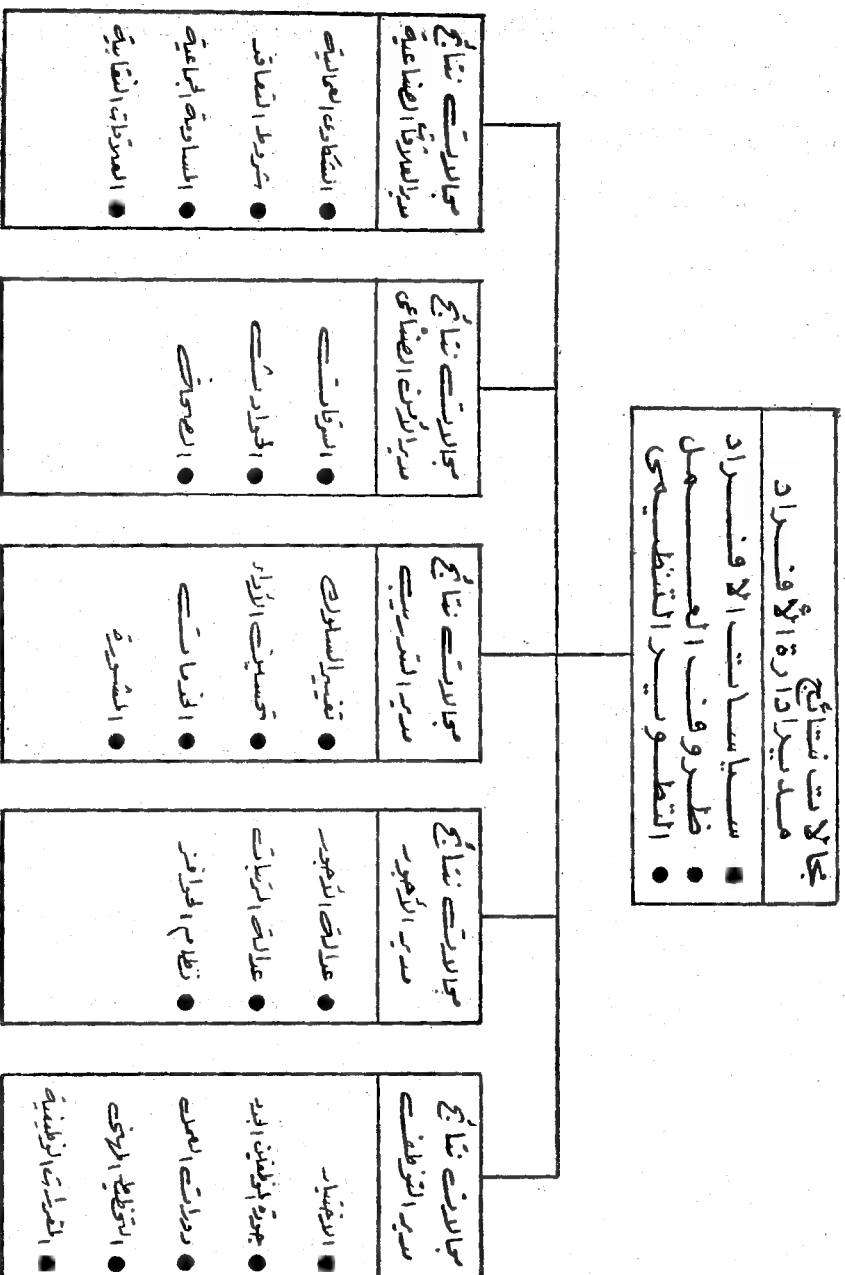 مجالات نتائج
مدير ادارة الأفراد
سياسات الافراد
ظروف العمل
التطوير التنظيمى
مجالات نتائج
مدير التوظف
الاختبار
جودة الموظفين الجدد
دورات العمل
التخطيط المهنى
القدرات الوظيفية
مجالات نتائج
مدير الأجور
عدالة الأجور
عدالة المرتبات
نظام الحوافز
مجالات نتائج
مدير التدريب
تغيير السلوك
تحسين الأداء
الخدمات
المشورة
مجالات نتائج
مدير الأمن الصناعى
السرقات
الحوادث
مجالات نتائج
مدير العلاقات الصناعية
الشكاوى العمالية
شروط التعاقد
المساومة الجماعية
العلاقات النقابية